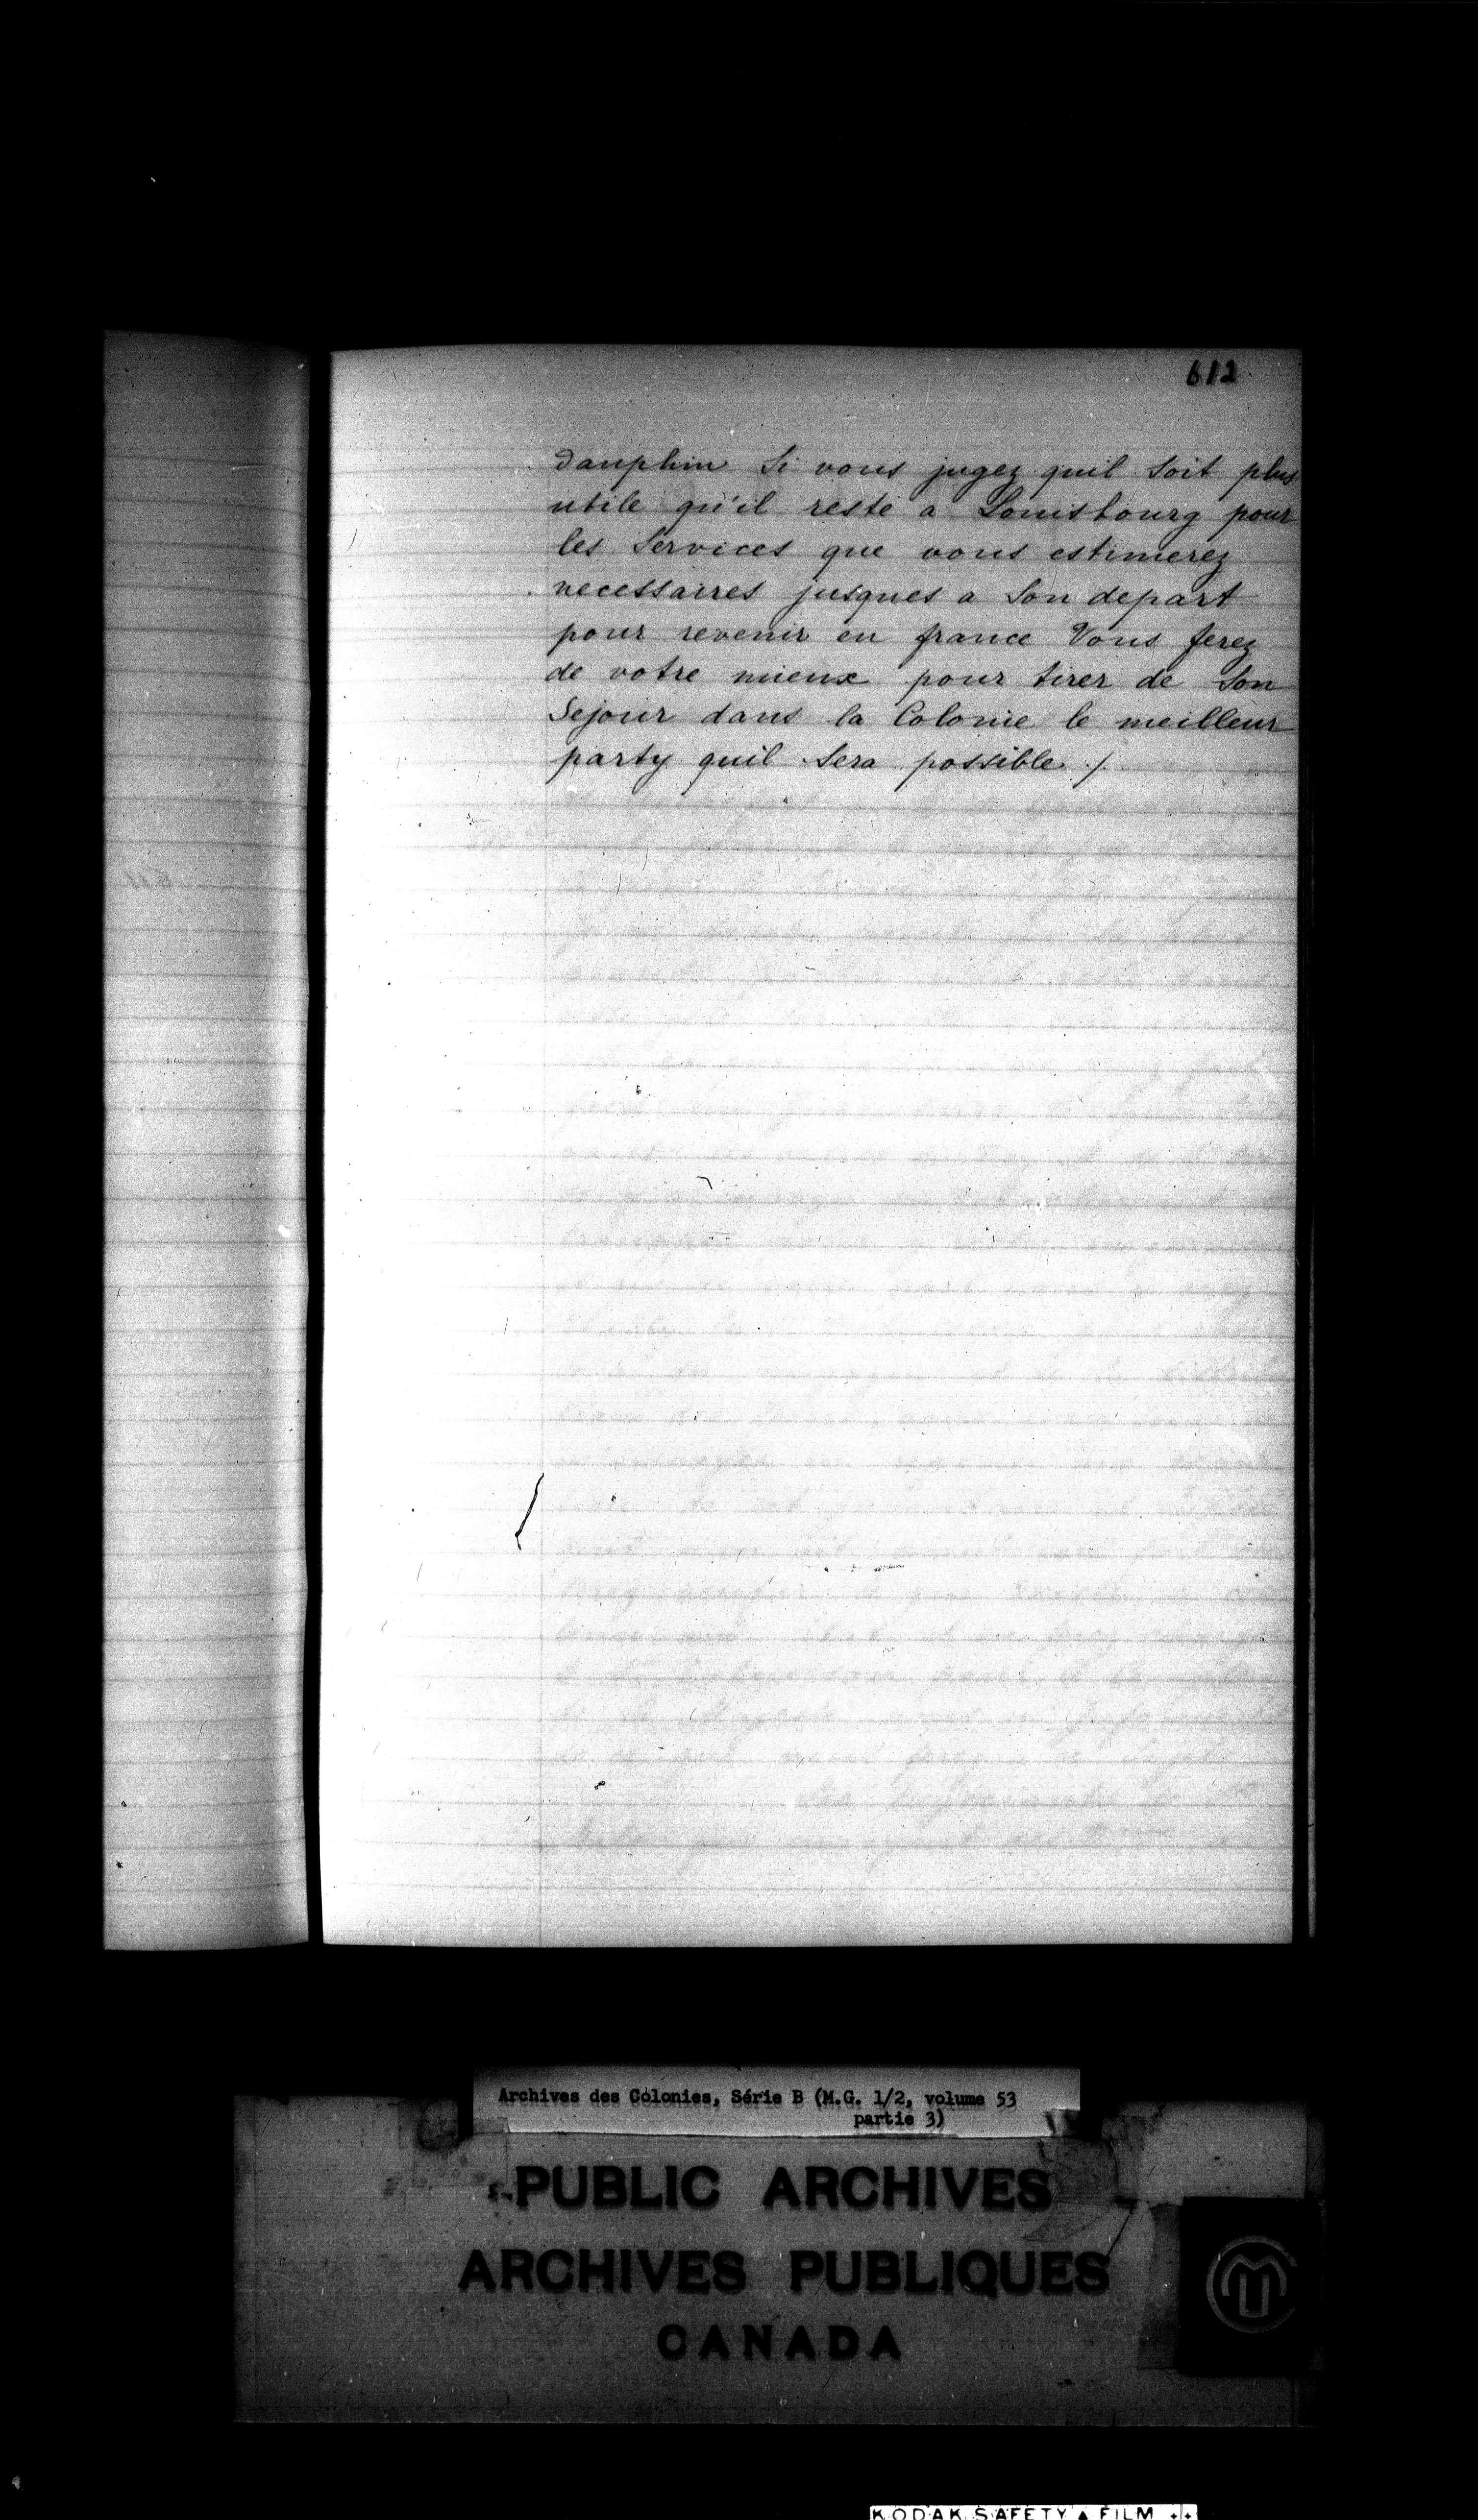 612
dauphin Si vous jugez quil Soit plus
utile qu'il reste a Louisbourg pour
les Services que vous estimerez
necessaires jusques a Son depart
pour revenir en france Vous ferez
de votre mieux pour tirer de Son
Sejour dans la Colonie le meilleur
party quil Sera possible ./.
Archives des Colonies, Série B (M.G. 1/2, volume 53
partie 3)
PUBLIC ARCHIVES
ARCHIVES PUBLIQUES
CANADA
KODAK SAFETY ▲ FILM ++